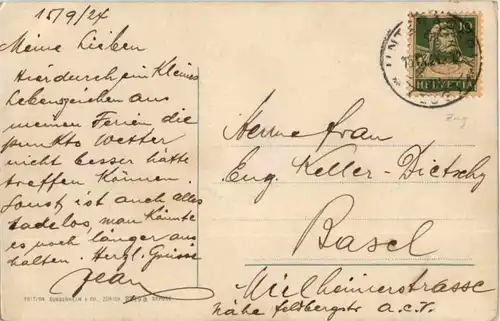 15/9/24
Meine Lieben
Hierdurch ein kleines
Lebenszeichen aus
meinen Ferien die
punkto Wetter
nicht besser hätte
treffen können.
Sonst ist auch alles
tadelos, man könnte
es noch länger aus
halten. Herzl. Grüsse
Jean
EDITION GUGGENHEIM & CO., ZÜRICH
10
HELVETIA
Zug
Madame frau
Eug. Keller-Dietschy
Basel
Mülheimerstrasse
nähe Feldbergstr a.c.V.